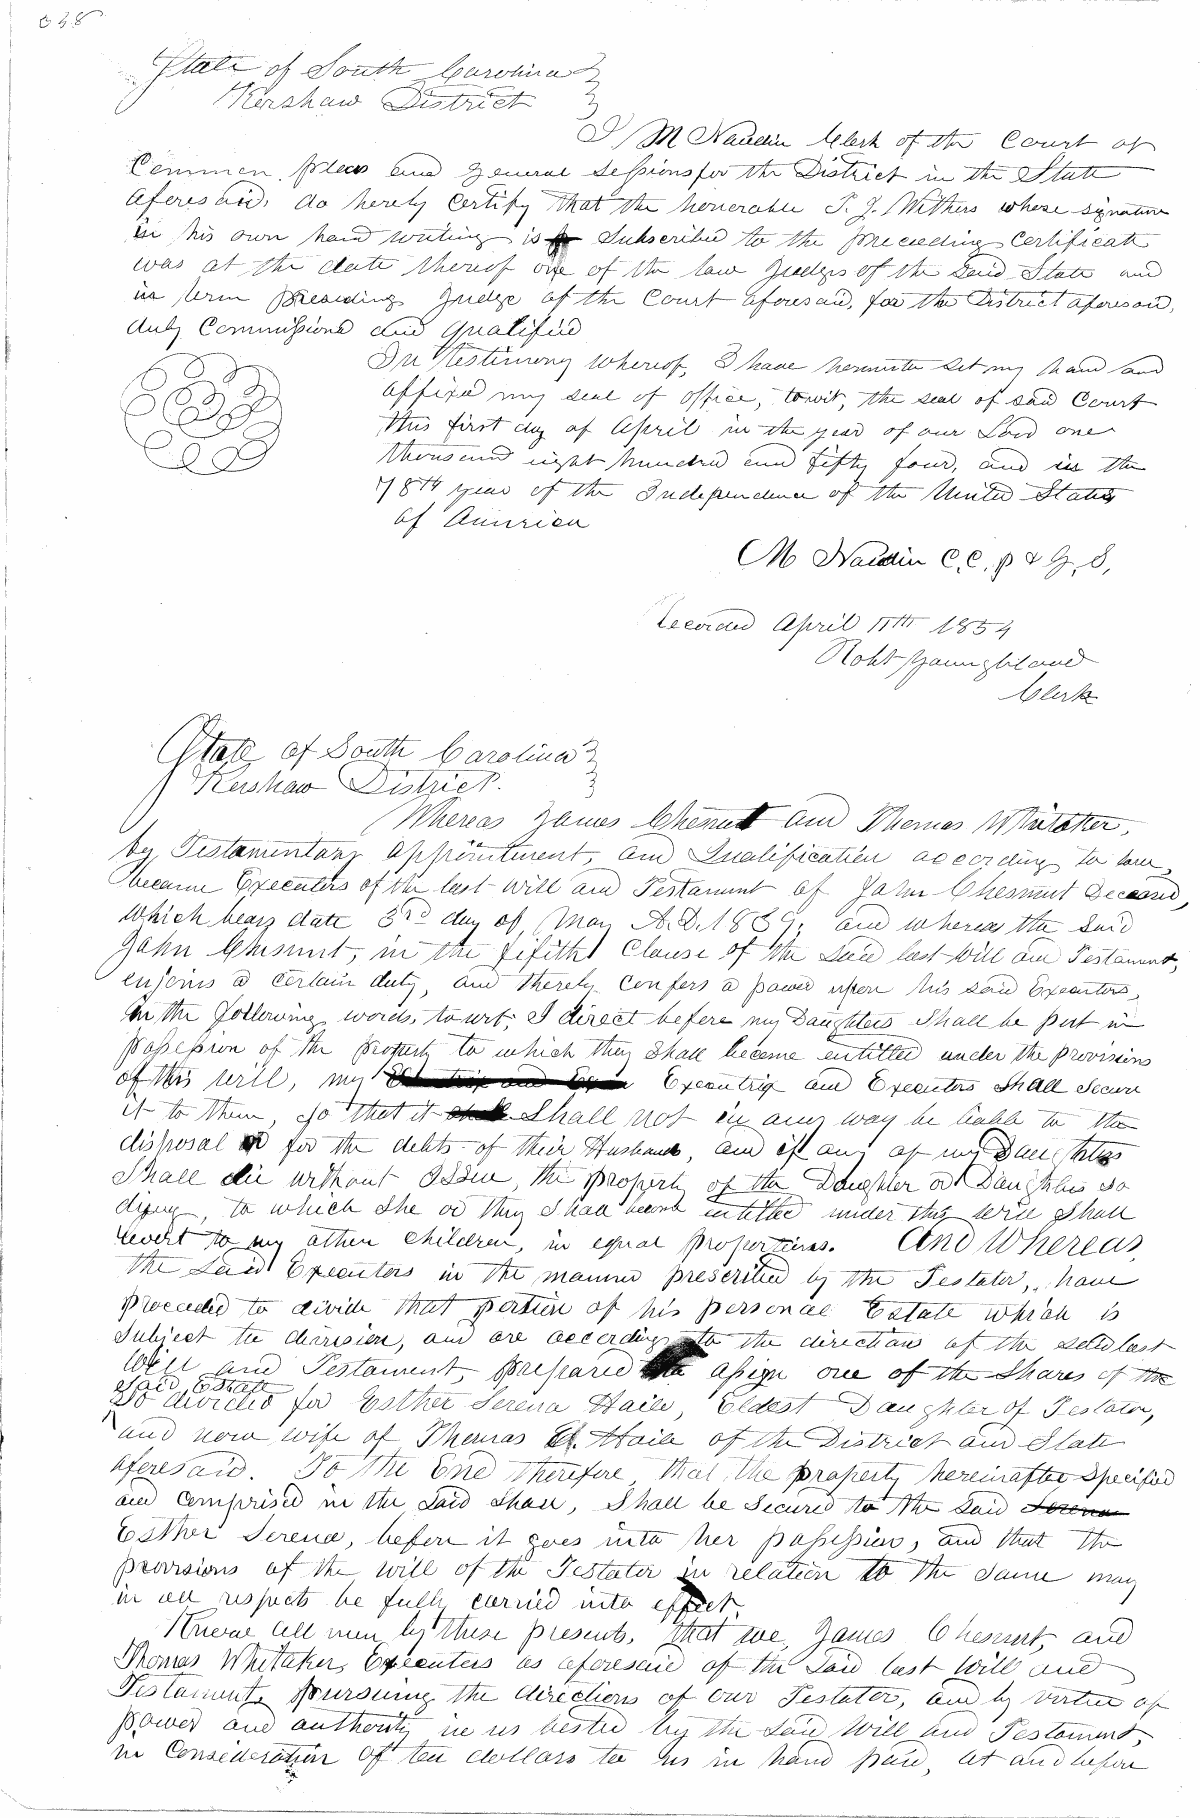 State of South Carolina
Kershaw District
I M Naudin Clerk of the Court of
Common pleas and general Sessions for the District in the State
aforesaid, do hereby certify that the honorable T. J. Withers whose signature
in his own hand writing is Subscribed to the preceeding certificate
was at the date thereof one of the law Judges of the Said State and
in term preceeding Judge of the Court aforesaid, for the District aforesaid,
duly Commissioned and qualified
In testimony whereof, I have hereunto set my hand and
affixed my seal of office, towit, the seal of said Court
this first day of April in the year of our Lord one
thousand eight hundred and fifty four, and in the
78th year of the Independence of the United States
of America
M Naudin C. C. p & G. S.
Recorded April 11th 1854
Robt Youngblood
Clerk
State of South Carolina
Kershaw District.
Whereas James Chesnut and Thomas Whitaker,
by Testamentary appointment, and Qualification according to law,
became Executors of the last will and Testament of John Chesnut Deceased,
which bears date 3rd day of May A.D. 1839, and whereas the Said
John Chesnut, in the fifith Clause of the Said last Will and Testament,
enjoins a certain duty, and thereby confers a power upon his said Executors,
in the following words, to wit; I direct before my Daughters Shall be put in
possession of the property to which they Shall become entitled under the provisions
of this will, my Executrix and Executors Shall Secure
it to them, So that it Shall not in any way be liable to the
disposal or for the debts of their Husband, and if any of my Daughters
Shall die without Issue, the property of the Daughter or Daughters so
dying, to which She or they Shall become entitled under this will Shall
revert to my other children, in equal proportions. And Whereas,
the Said Executors in the manner prescribed by the Testator, have
proceded to divide that portion of his personal Estate which is
Subject to division, and are according to the direction of the said last
Will and Testament, prepared to assign one of the Shares of the
said Estate
So divided for Esther Serena Haile, Eldest Daughter of Testator,
and now wife of Thomas E. Haile of the District and State
aforesaid. To the End therefore, that the property hereinafter Specified
and comprised in the Said Share, Shall be Secured to the Said Serena
Esther Serena, before it goes into her possession, and that the
provisions of the will of the Testator in relation to the same may
in all respects be fully carried into effect.
Know all men by these presents, that we, James Chesnut, and
Thomas Whitaker, Executors as aforesaid of the Said last Will and
Testament, pursuing the directions of our Testator, and by virtue of
power and authority in us bested by the Said Will and Testament,
in Consideration of ten dollars to us in hand paid, at and before